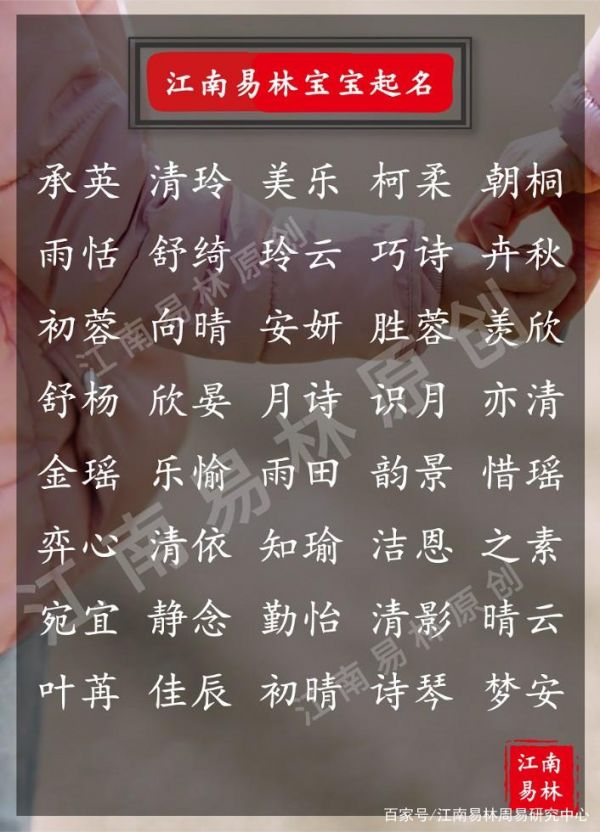 江南易林宝宝起名
承英 清玲 美乐 柯柔 朝桐
雨恬 舒绮 玲云 巧诗 卉秋
初蓉 向晴 安妍 胜蓉 羡欣
舒杨 欣晏 月诗 识月 亦清
金瑶 乐愉 雨田 韵景 惜瑶
弈心 清依 知瑜 洁恩 之素
宛宜 静念 勤怡 清影 晴云
叶苒 佳辰 初晴 诗琴 梦安
江南易林原创
江南易林原创
江南易林原创
江南
易林
百家号/江南易林周易研究中心